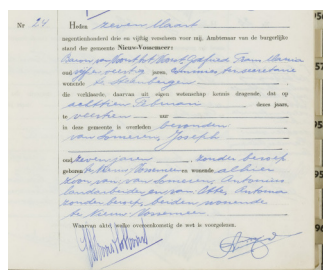 Nr 24 Heden zeven Maart
negentienhonderd drie en vijftig verscheen voor mij, Ambtenaar van de burgerlijke
stand der gemeente Nieuw-Vossemeer:
Baron van Godfried Frans Maria
oud vijf en veertig jaren
wonende te
die verklaarde, daarvan uit eigen wetenschap kennis dragende, dat op
achttien Februari dezes jaars,
te veertien uur
in deze gemeente is overleden bevonden
van Someren, Joseph
oud zeven jaren, zonder beroep
geboren te Nieuw Vossemeer en wonende alhier
zoon van van Someren, Antonius
landarbeider, en van Otte, Antonia
zonder beroep, beiden wonende
te Nieuw Vossemeer.
Waarvan akte, welke overeenkomstig de wet is voorgelezen.